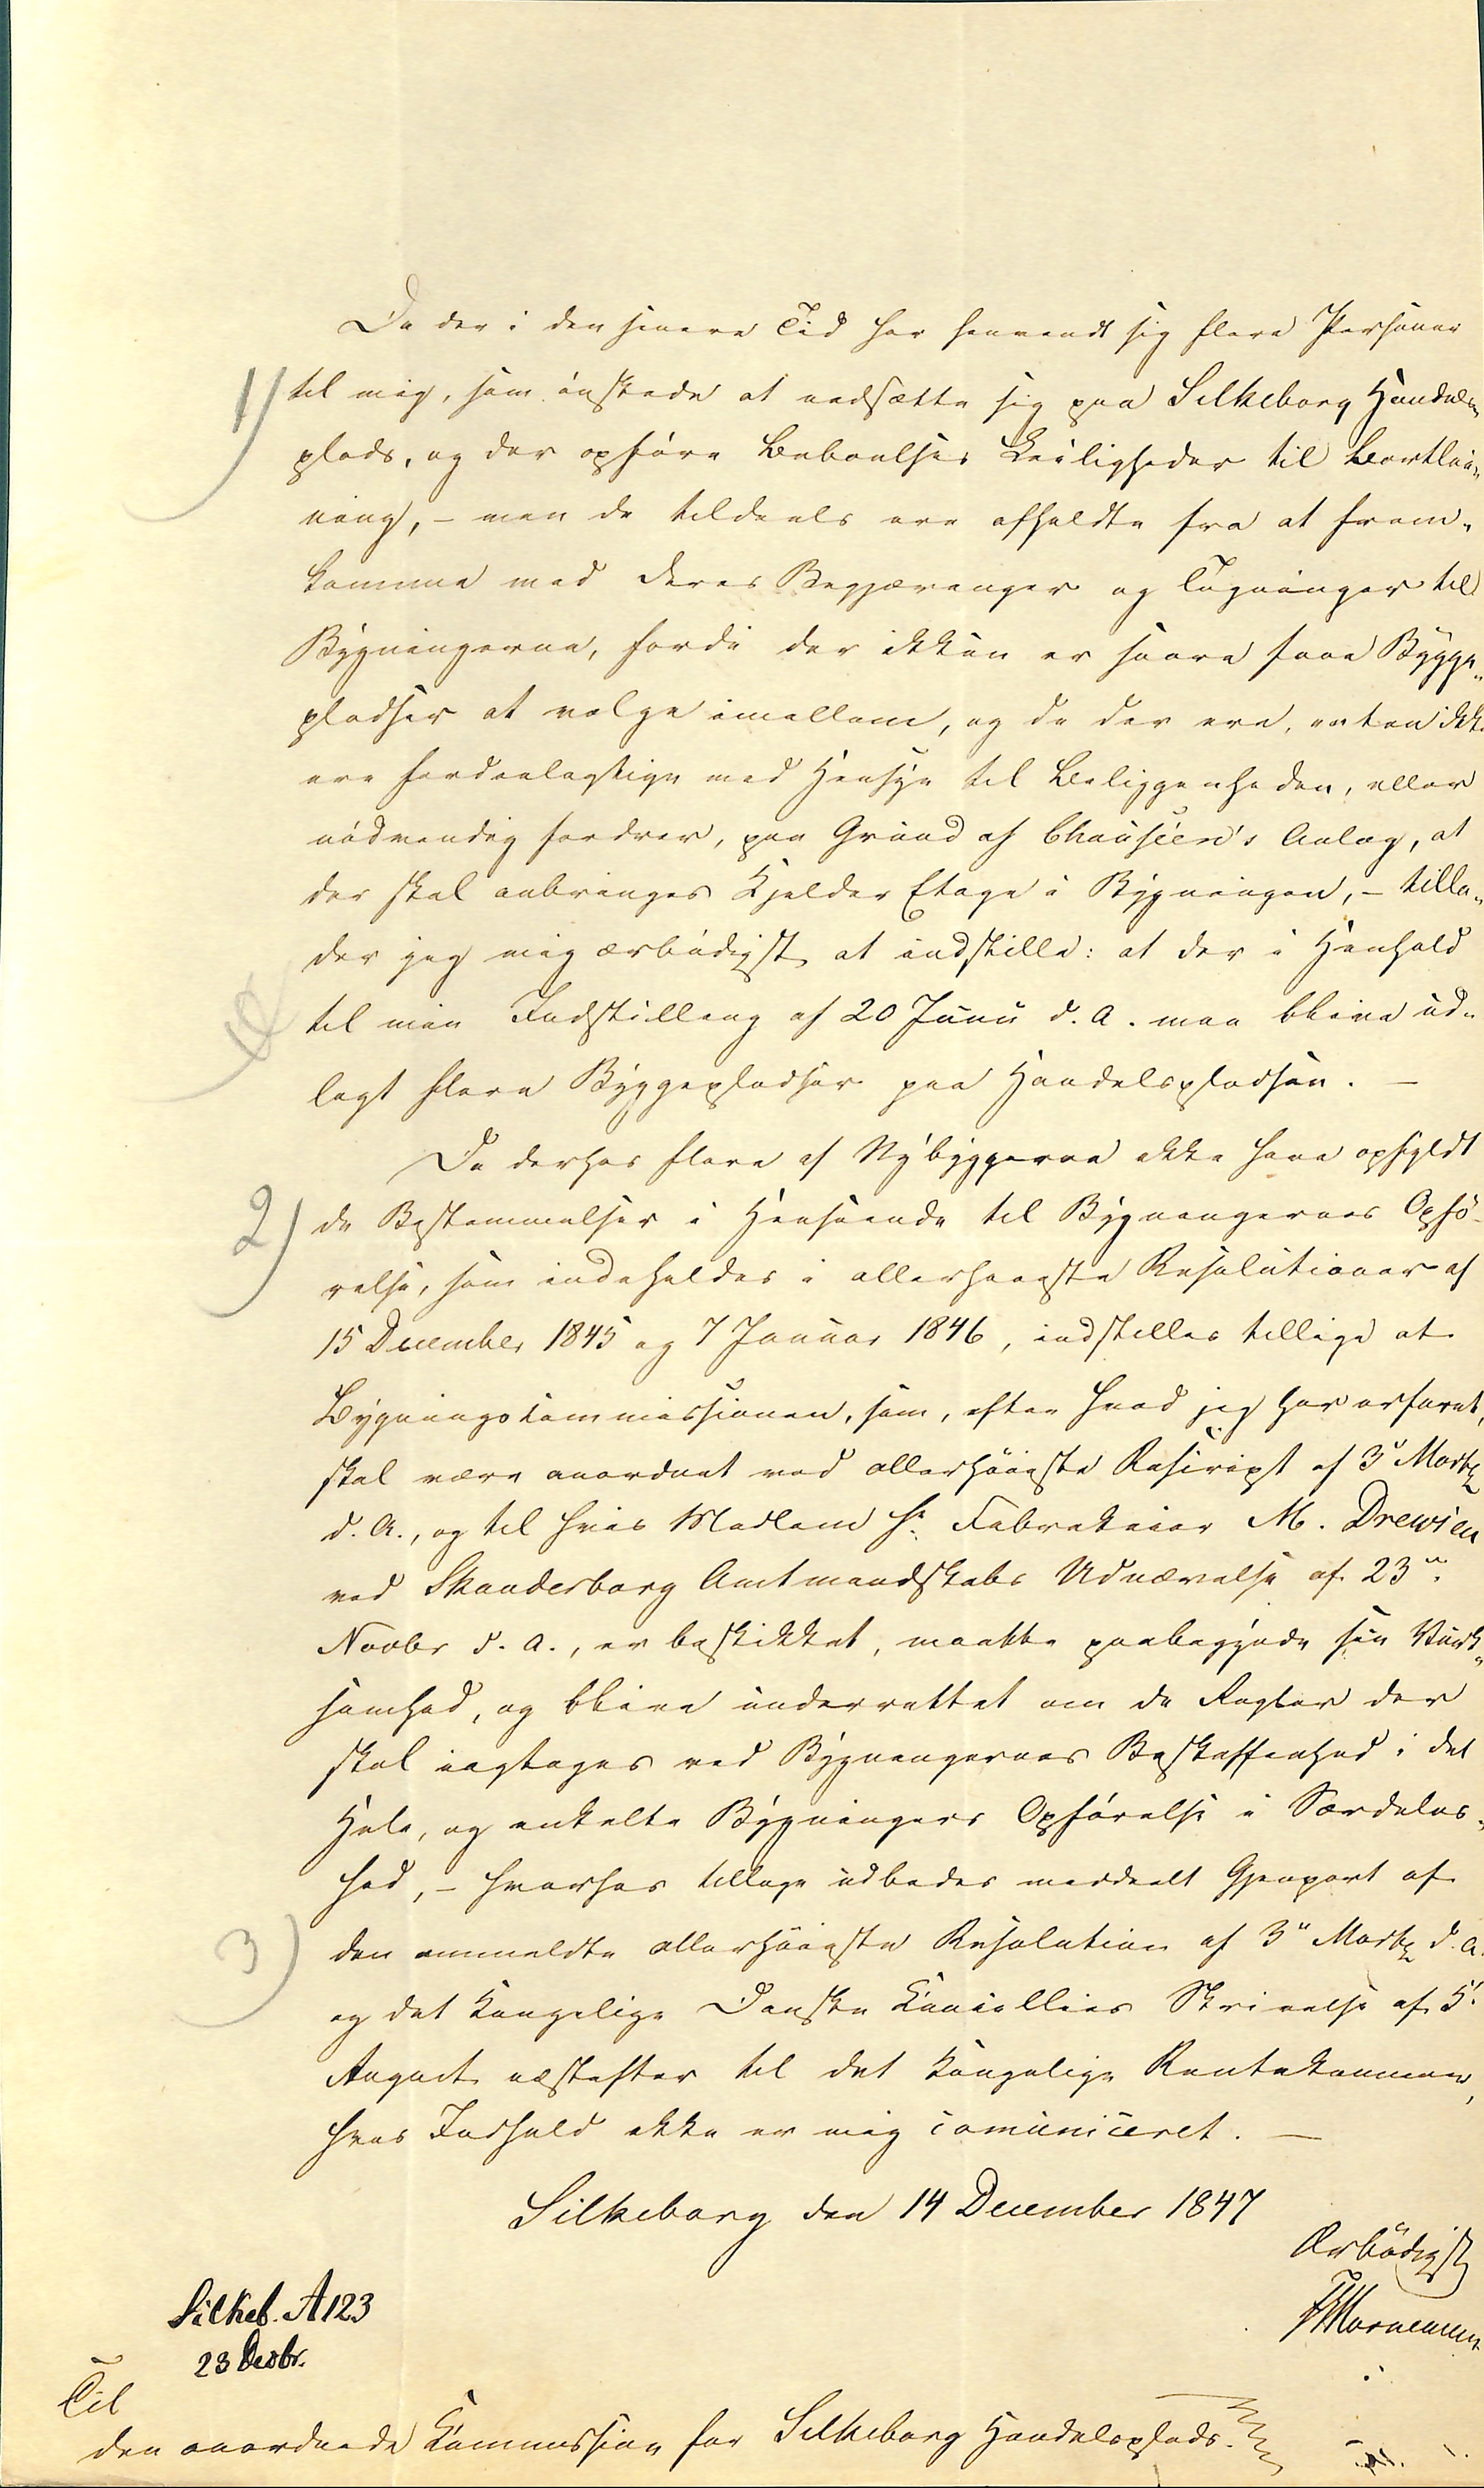 Da der i den senere Tid har henvendt sig flere Personer
1) til mig, som ønskede at nedsætte sig paa Silkeborg Handels„
plads, og der opføre Beboelses Leiligheder til Bortlei„
ning, – men de tildeels ere afholdte fra at frem„
komme med deres Begjæringer og Tegninger til
Bygningerne, fordi der ikkun er saare faae Bygge„
pladser at vælge imellem, og de der ere, enten ikke
ere fordeelagtige med Hensyn til Beliggenheden, eller
nødvendig fordrer, paa Grund af Chauseen's Anlæg, at
der skal anbringes Kjelder Etage i Bygningen, – tilla„
der jeg mig ærbødigst at indstille: at der i Henhold
til min Indstilling af 20 Juni d. A. maa blive ud„
lagt flere Byggepladser paa Handelspladsen. –
Da derhos flere af Nybyggerne ikke have opfyldt
2) de Bestemmelser i Henseende til Bygningernes Opfø„
relse, som indeholdes i allerhøieste Resolutioner af
15 December 1845 og 7 Januar 1846, indstilles tillige at
Bygningskommissionen, som, efter hvad jeg har erfaret,
skal være anordnet ved allerhøieste Rescript af 3 Marts
d. A., og til hvis Medlem Hr. Fabrikeier M. Drewsen
ved Skanderborg Amtmandskabs Udnævelse af 23
Novbr d. A., er beskikket, maatte paabegynde sin Virk„
somhed, og blive underrettet om de Regler der
skal iagtages ved Bygningernes Beskaffenhed i det
Hele, og enkelte Bygningers Opførelse i Særdeles„
hed, – hvorhos tillige udbedes meddeelt Gjenpart af
3) den ommeldte allerhøieste Resolution af 3 Marts d. A.
og det kongelige Danske Cancellies Skrivelse af 5
August næstefter til det kongelige Rentekammer,
hvis Indhold ikke er mig comuniceret. –
Silkeborg den 14 December 1847
Ærbødigst
Silkeb. A 123
23 Decbr.
Til
den anordnede Commission for Silkeborg Handelsplads.